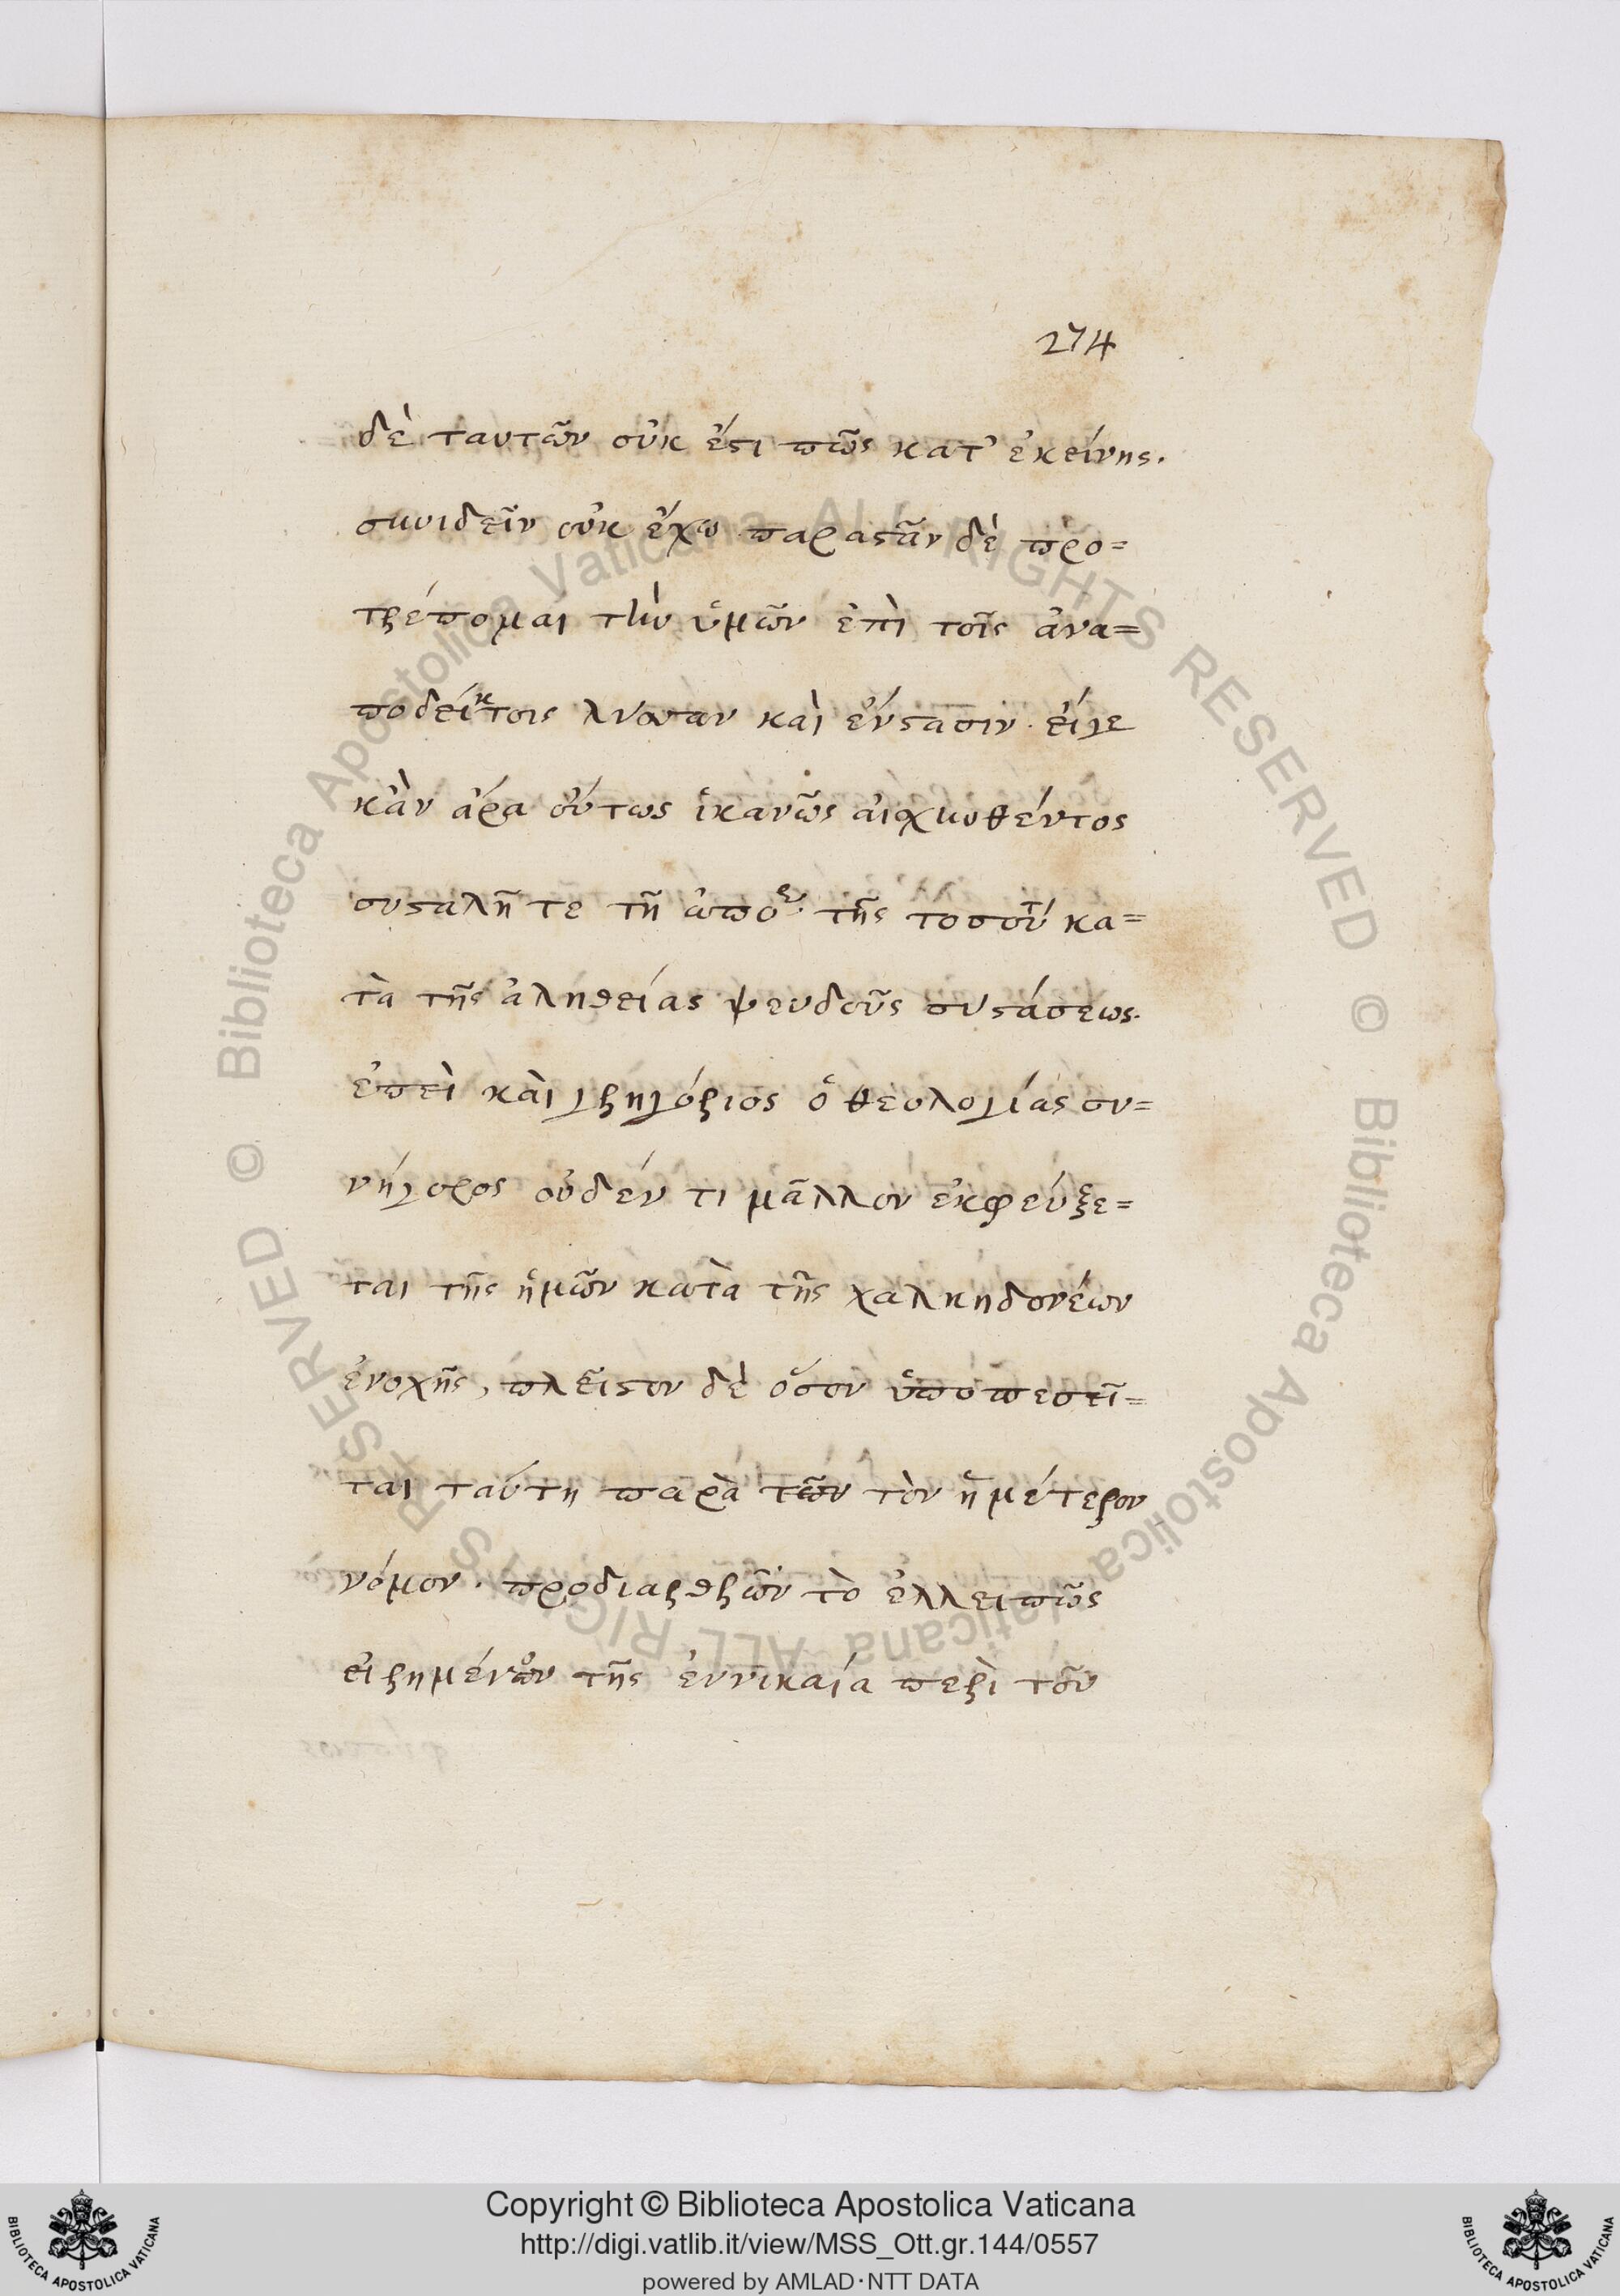 274
δὲ ταυτῶν οὐκ ἔστι πῶς κατ' ἐκείνης.
συνιδεῖν οὐκ ἔχω παραστᾶν δὲ προ=
τρέπομαι τὴν ὑμῶν ἐπὶ τοῖς ἀνα=
ποδείκτοις καὶ ἔνστασιν. εἴγε
κἂν ἄρα οὕτως ἱκανῶς αἰσχυνθέντος
συσταλῆ τε τῆ τῆς τοσοῦτ κα=
τὰ τῆς ἀληθείας ψευδοῦς συστάσεως.
ἐπεὶ καὶ γρηγόριος ὁ θεολογίας συ=
νήγορος οὐδέν τι μᾶλλον ἐκφεύξε=
ται τῆς ἡμῶν κατὰ τῆς χαλκηδονέων
ἐνοχῆς, πλεῖστον δὲ ὅσον ὑποπεσεῖ=
ται ταύτη παρὰ τῶν τὸν ἡμέτερον
νόμον. προδιαρθρῶν τὸ ἐλλειπῶς
εἰρημένον τῆς ἐννικαία περὶ τοῦ
Biblioteca Apostolica Vaticana ALL RIGHTS RESERVED ©
Biblioteca Apostolica Vaticana ALL RIGHTS RESERVED ©
Copyright © Biblioteca Apostolica Vaticana
http://digi.vatlib.it/view/MSS_Ott.gr.144/0557
powered by AMLAD·NTT DATA
BIBLIOTECA APOSTOLICA VATICANA
BIBLIOTECA APOSTOLICA VATICANA